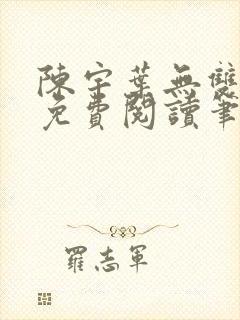 陳宇葉無雙
免費閱讀筆
羅志軍